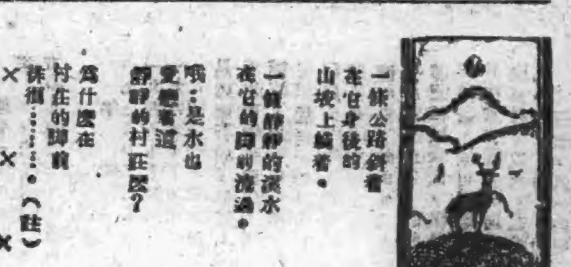 一條公路斜着
在它身後的
山坡上躺着。
一條靜靜的溪水
在它的脚前流過。
哦：是水也
愛戀着這
靜靜的村莊麼？
爲什麼在
村莊的脚前
徘徊………。（註）
×　×　×